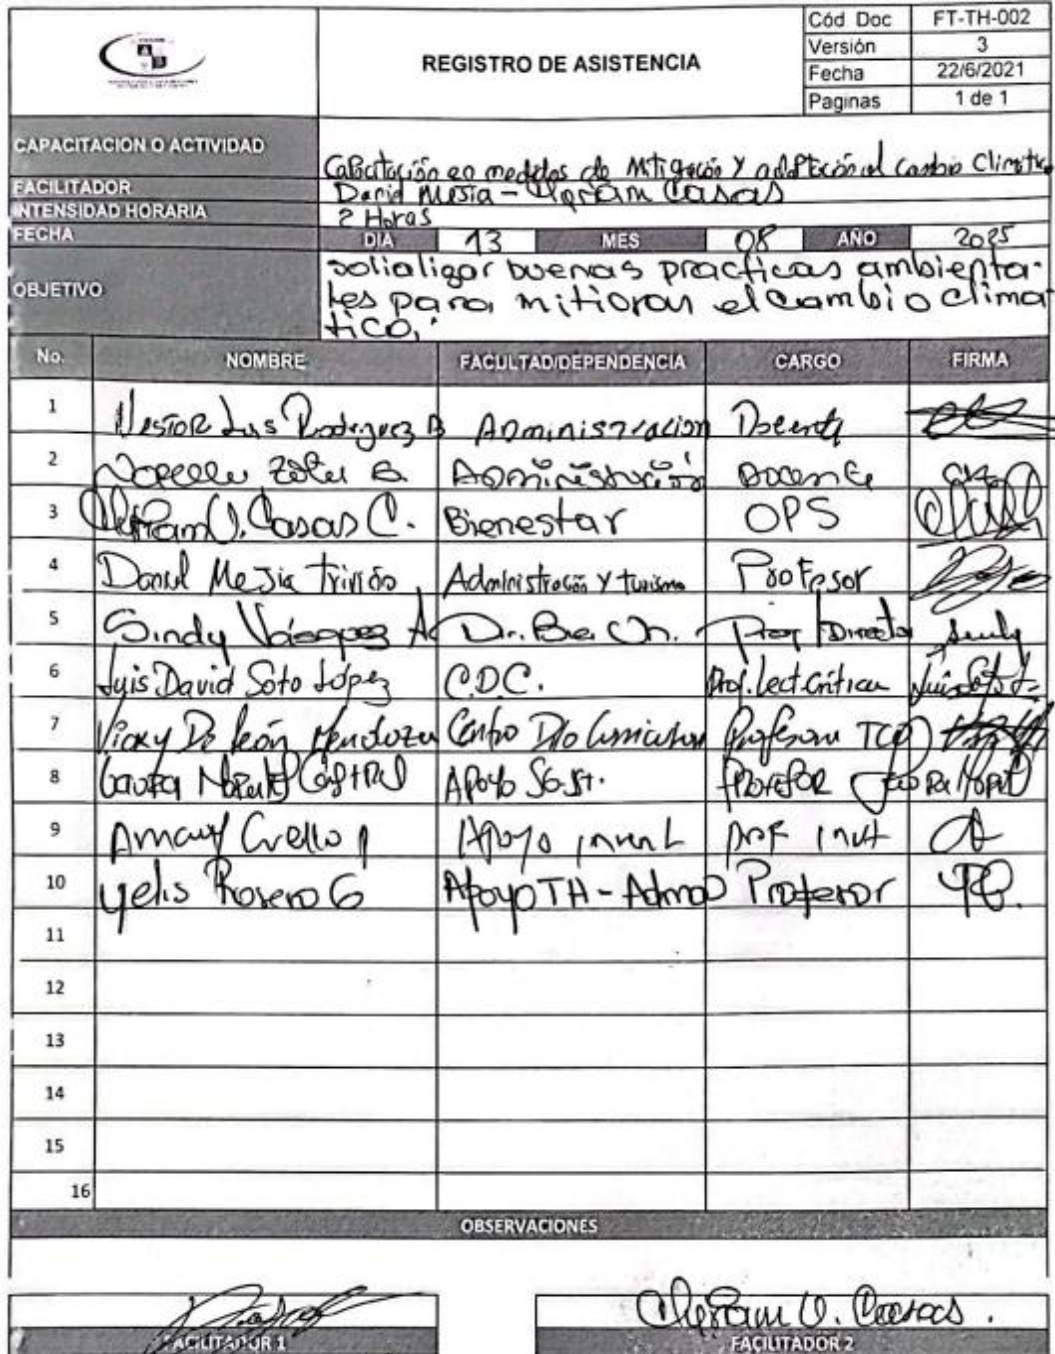 Cód Doc FT-TH-002
REGISTRO DE ASISTENCIA
Versión 3
Fecha 22/6/2021
Paginas 1 de 1
CAPACITACION O ACTIVIDAD
Capacitación en medidas de Mitigación Y adaptación al cambio Climático
FACILITADOR
David Mesia - Casas
INTENSIDAD HORARIA
2 Horas
FECHA DIA 13 MES 08 AÑO 2025
OBJETIVO
solializar buenas practicas ambienta-
les para mitiorar el cambio clima
tico.
No. NOMBRE FACULTAD/DEPENDENCIA CARGO FIRMA
1 Nestor Luis Rodriguez B Administracion Docente
2 Administración Docente
3 Casas C. Bienestar OPS
4 Daniel Mejia Administración Y turismo Profesor
5 Sindy Vásquez A. Director
6 Luis David Soto López C.D.C. Prof. Lect. Crítica
7 Vicky De león Mendoza Centro Profesora TCO
8 Apoyo Profesor
9 Apoyo
10 Yelis Rosero G Apoyo TH - Admo Profesor
11
12
13
14
15
16
OBSERVACIONES
Casas.
FACILITADOR 1 FACILITADOR 2